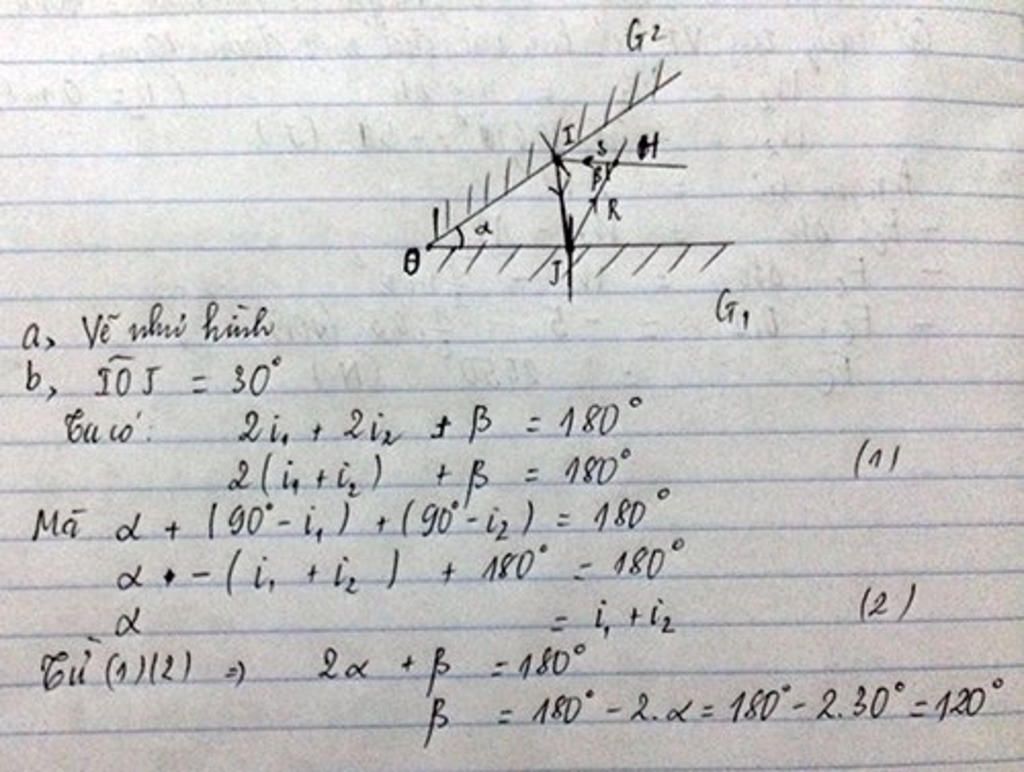 G2
I
S
H
β
R
α
O
J
G1
a, Vẽ như hình
b, IÔJ = 30°
Ta có: 2i₁ + 2i₂ + β = 180°
2(i₁ + i₂) + β = 180° (1)
Mà α + (90° - i₁) + (90° - i₂) = 180°
α - (i₁ + i₂) + 180° = 180°
α = i₁ + i₂ (2)
Từ (1)(2) => 2α + β = 180°
β = 180° - 2.α = 180° - 2.30° = 120°